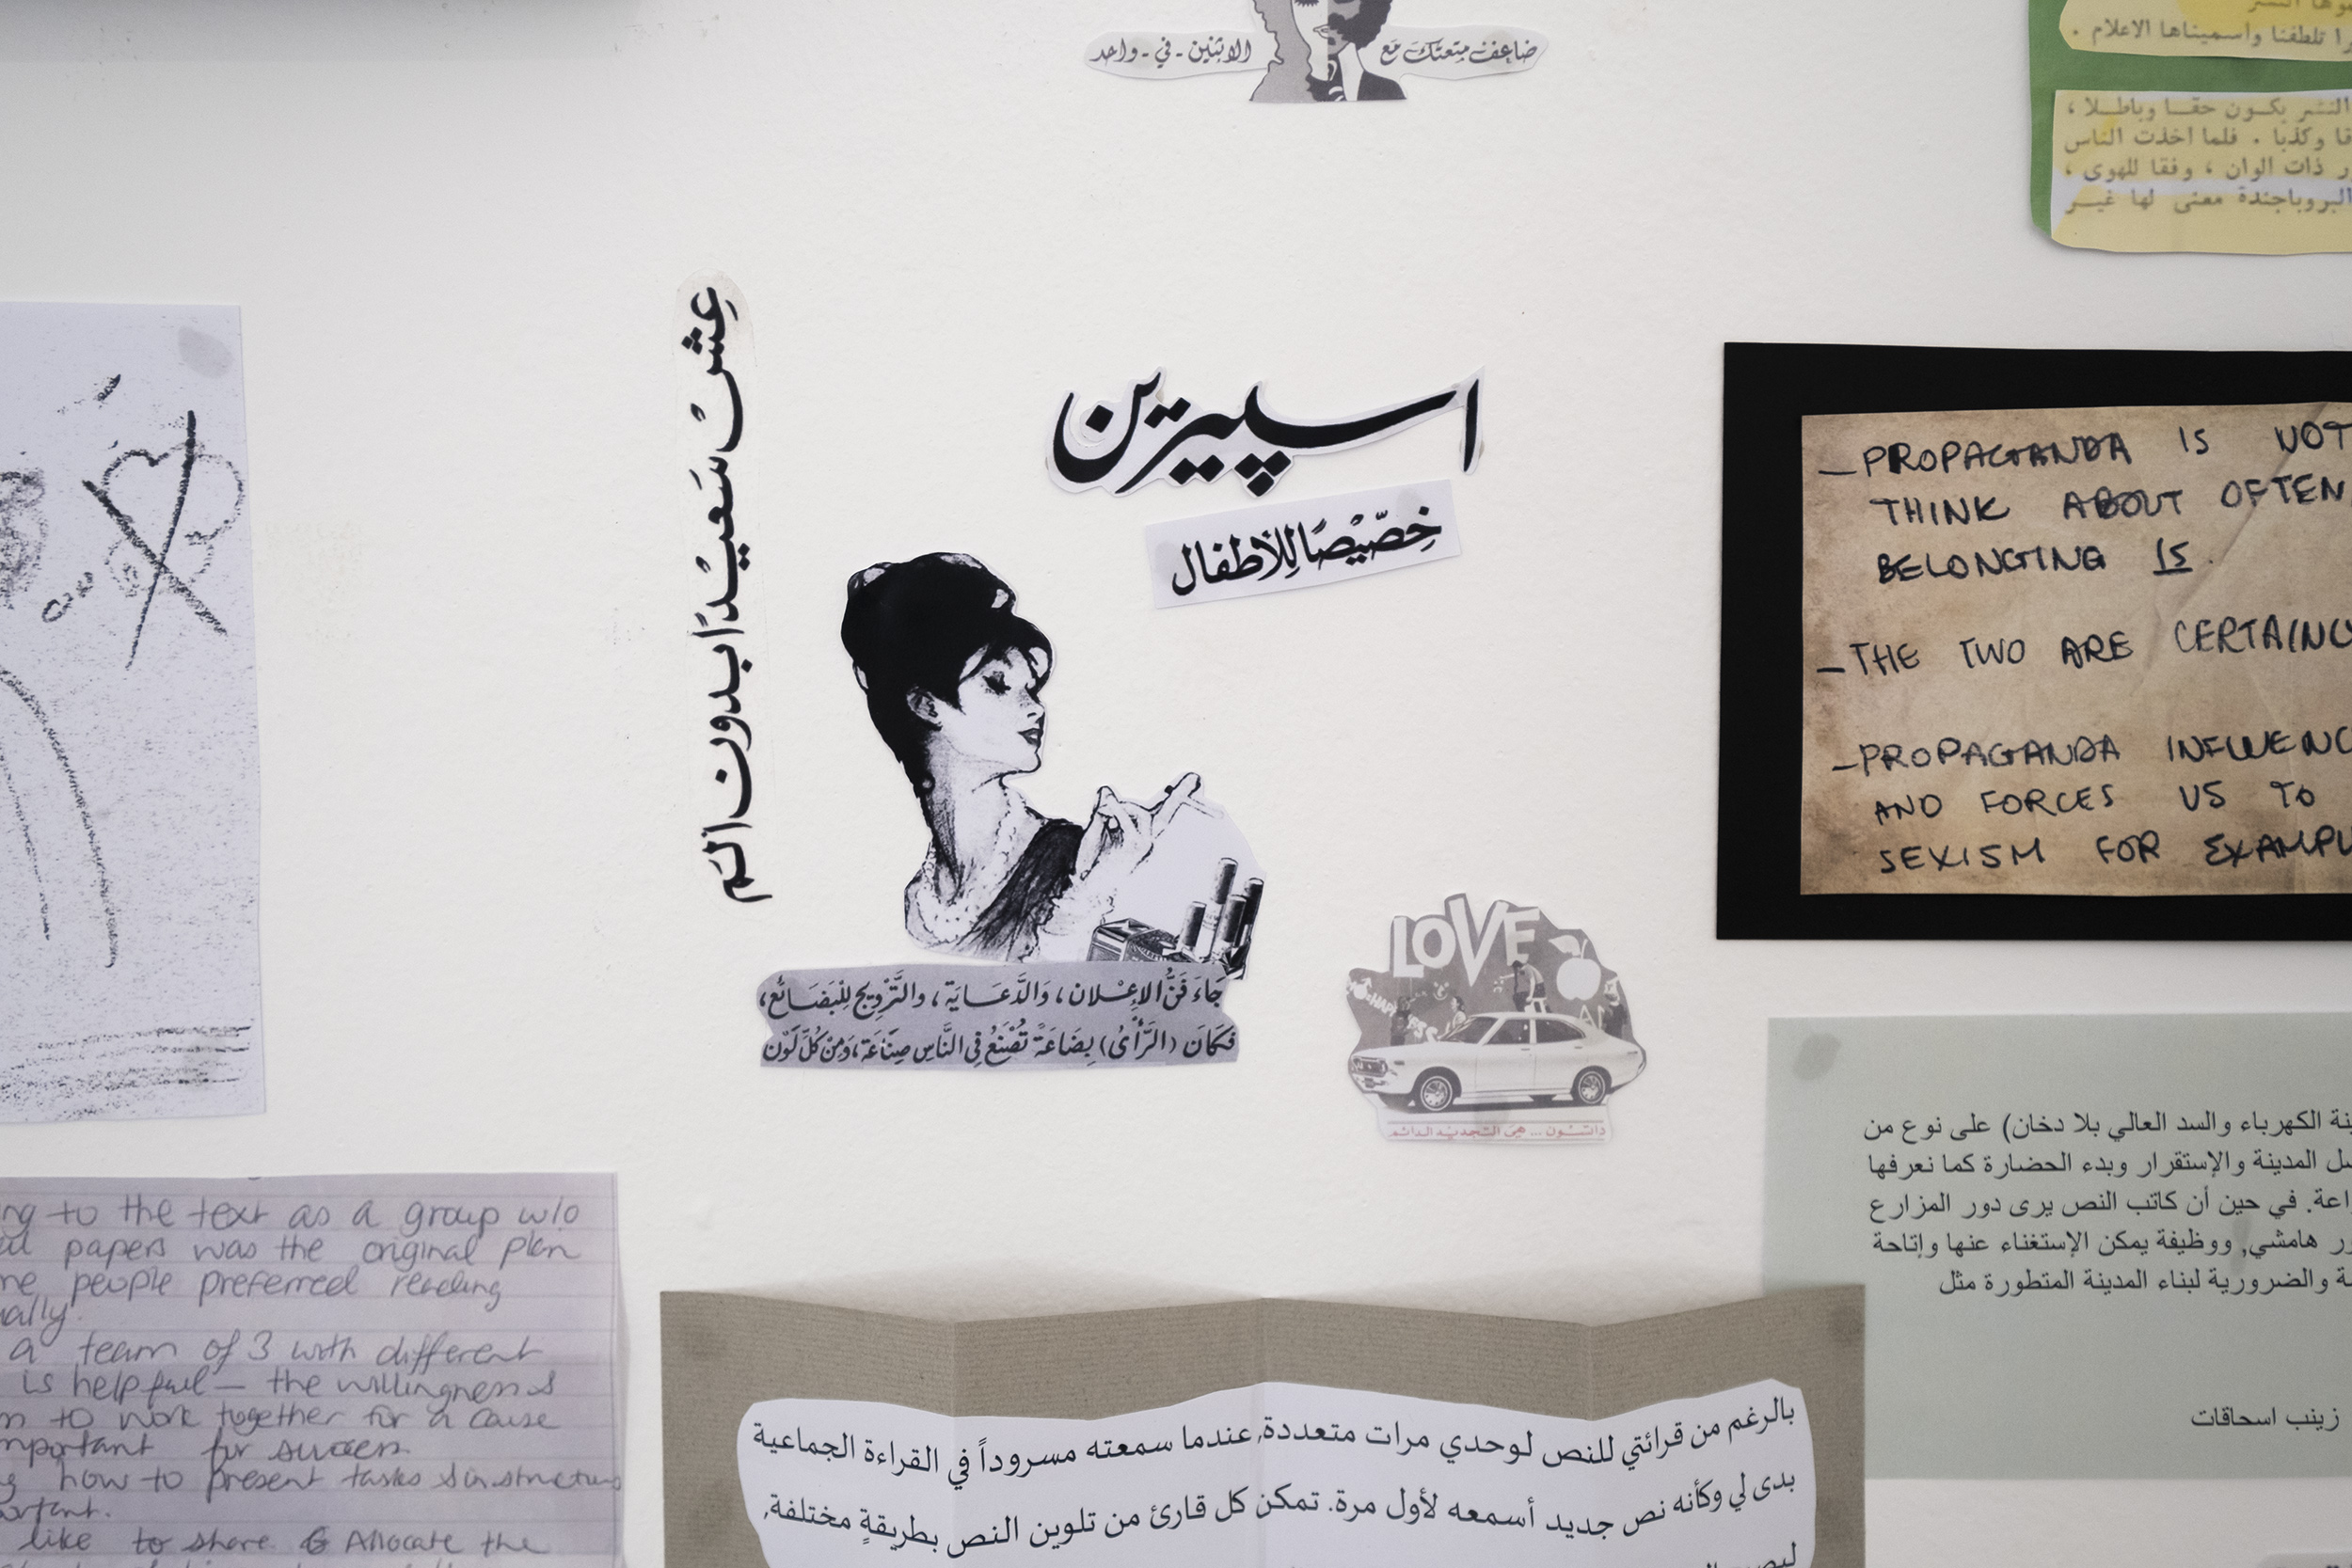 ضاعف متعتك مع
الاثنين - في - واحد
را تلطفنا واسميناها الاعلام .
النشر يكون حقا وباطلا ،
وكذبا . فلما اخذت الناس
ذات الوان ، وفقا للهوى ،
البروباجندة معنى لها غير
عش سعيدا بدون الم
اسپيرين
خصّيْصًا للأطفال
جَاءَ فَنُّ الإِعْلان ، وَالدَّعَايَة ، والتَّرْوِيج لِلْبَضَائِع ،
فكَانَ (الرَّأْى) بِضَاعَةً تُصْنَعُ فِى النَّاسِ صِنَاعَة ، وَمِنْ كُلِّ لَوْن
LOVE
داتسون ... هي التجديد الدائم
- PROPAGANDA IS NOT
THINK ABOUT OFTEN
BELONGING IS.
- THE TWO ARE CERTAINLY
- PROPAGANDA INFLUENC
AND FORCES US TO
SEXISM FOR EXAMPL
الكهرباء والسد العالي بلا دخان) على نوع من
المدينة والإستقرار وبدء الحضارة كما نعرفها
في حين أن كاتب النص يرى دور المزارع
هامشي, ووظيفة يمكن الإستغناء عنها وإتاحة
والضرورية لبناء المدينة المتطورة مثل
زينب اسحاقات
to the text as a group w/o
papers was the original plan
people preferred reading
a team of 3 with different
is helpful — the willingness
to work together for a cause
important for success
how to present tasks
like to share & Allocate the
بالرغم من قرائتي للنص لوحدي مرات متعددة, عندما سمعته مسروداً في القراءة الجماعية
بدى لي وكأنه نص جديد أسمعه لأول مرة. تمكن كل قارئ من تلوين النص بطريقةٍ مختلفة,